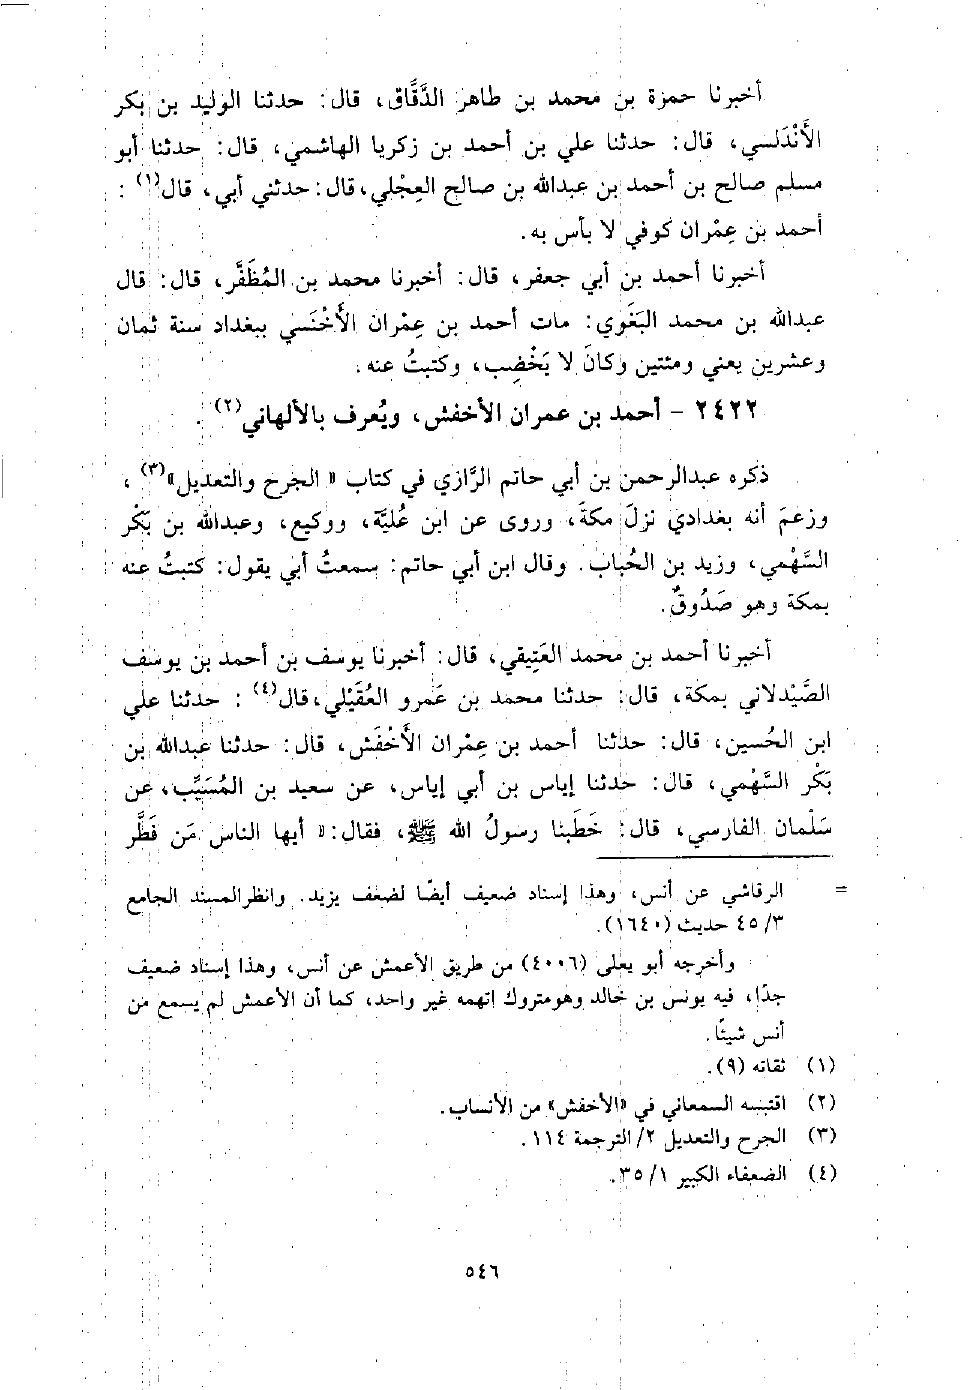 أخبرنا حمزة بن محمد بن طاهر الدَّقَّاق، قال: حدثنا الوليد بن بكر
الأَنْدَلسي، قال: حدثنا علي بن أحمد بن زكريا الهاشمي، قال: حدثنا أبو
مسلم صالح بن أحمد بن عبدالله بن صالح العِجْلي، قال: حدثني أبي، قال(١):
أحمد بن عِمْران كوفي لا بأس به.
أخبرنا أحمد بن أبي جعفر، قال: أخبرنا محمد بن المُظَفَّر، قال: قال
عبدالله بن محمد البَغَوي: مات أحمد بن عِمْران الأَخْنَسي ببغداد سنة ثمان
وعشرين يعني ومئتين وكانَ لا يَخْضِب، وكتبتُ عنه.
٢٤٢٢ - أحمد بن عمران الأخفش، ويُعرف بالألهاني(٢).
ذكره عبدالرحمن بن أبي حاتم الرَّازي في كتاب «الجرح والتعديل»(٣)،
وزعمَ أنه بغدادي نزلَ مكةَ، وروى عن ابن عُليَّة، ووكيع، وعبدالله بن بَكْر
السَّهْمي، وزيد بن الحُباب. وقال ابن أبي حاتم: سمعتُ أبي يقول: كتبتُ عنه
بمكة وهو صَدُوقٌ.
أخبرنا أحمد بن محمد العَتِيقي، قال: أخبرنا يوسف بن أحمد بن يوسف
الصَّيْدلاني بمكة، قال: حدثنا محمد بن عَمرو العُقَيْلي، قال(٤): حدثنا علي
ابن الحُسين، قال: حدثنا أحمد بن عِمْران الأَخْفَش، قال: حدثنا عبدالله بن
بَكْر السَّهْمي، قال: حدثنا إياس بن أبي إياس، عن سعيد بن المُسَيِّب، عن
سَلْمان الفارسي، قال: خَطَبنا رسولُ الله ﷺ، فقال: «أيها الناس مَن فَطَّر
= الرقاشي عن أنس، وهذا إسناد ضعيف أيضًا لضعف يزيد. وانظر المسند الجامع
٣/ ٤٥ حديث (١٦٤٠).
وأخرجه أبو يعلى (٤٠٠٦) من طريق الأعمش عن أنس، وهذا إسناد ضعيف
جدًا، فيه يونس بن خالد وهو متروك اتهمه غير واحد، كما أن الأعمش لم يسمع من
أنس شيئًا.
(١) ثقاته (٩).
(٢) اقتبسه السمعاني في «الأخفش» من الأنساب.
(٣) الجرح والتعديل ٢/ الترجمة ١١٤.
(٤) الضعفاء الكبير ١/ ٣٥.
٥٤٦